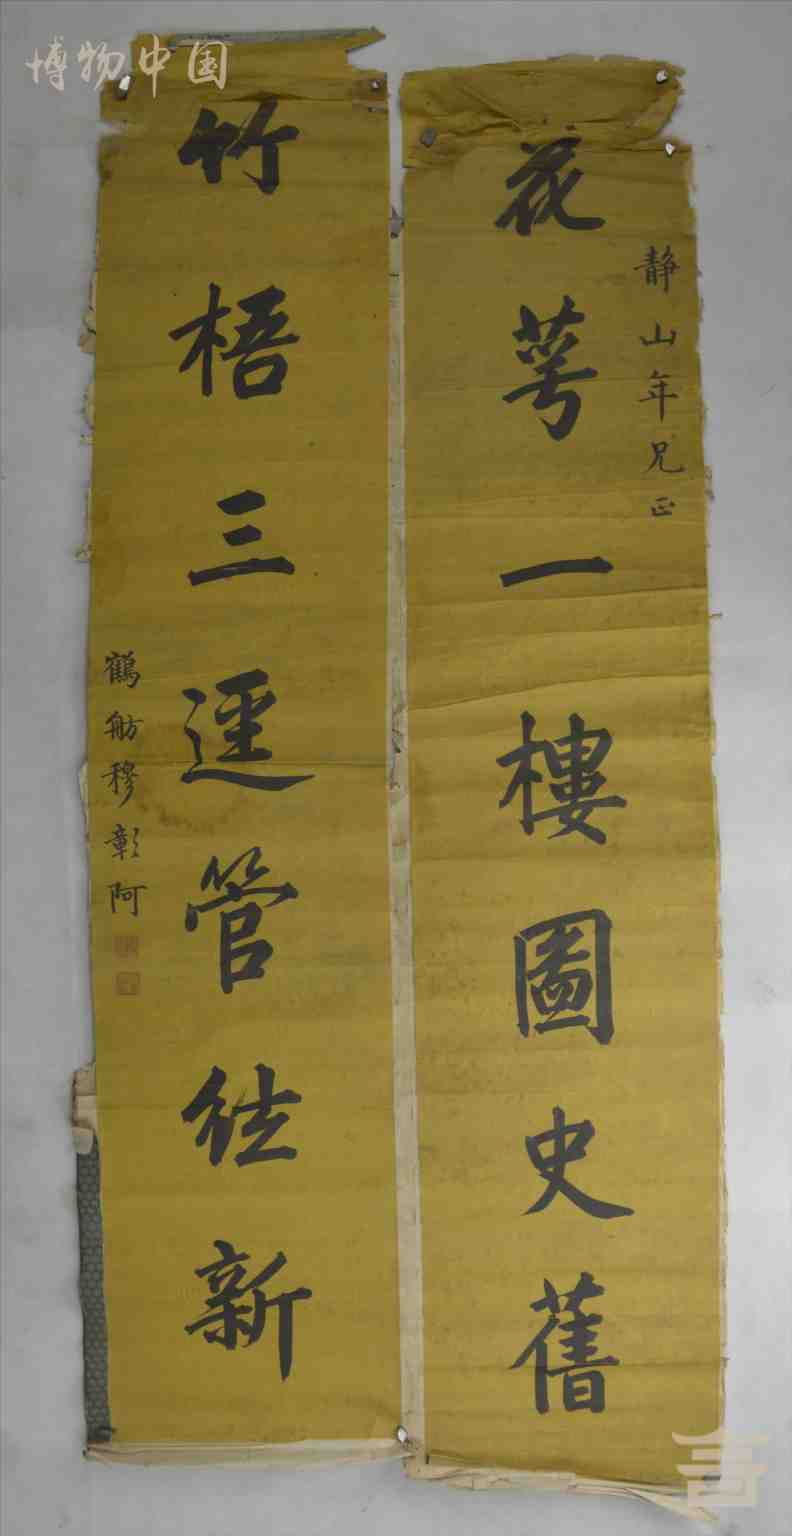 博物中国
静山年兄正
花萼一樓圖史舊
竹梧三逕管絃新
鶴舫穆彰阿